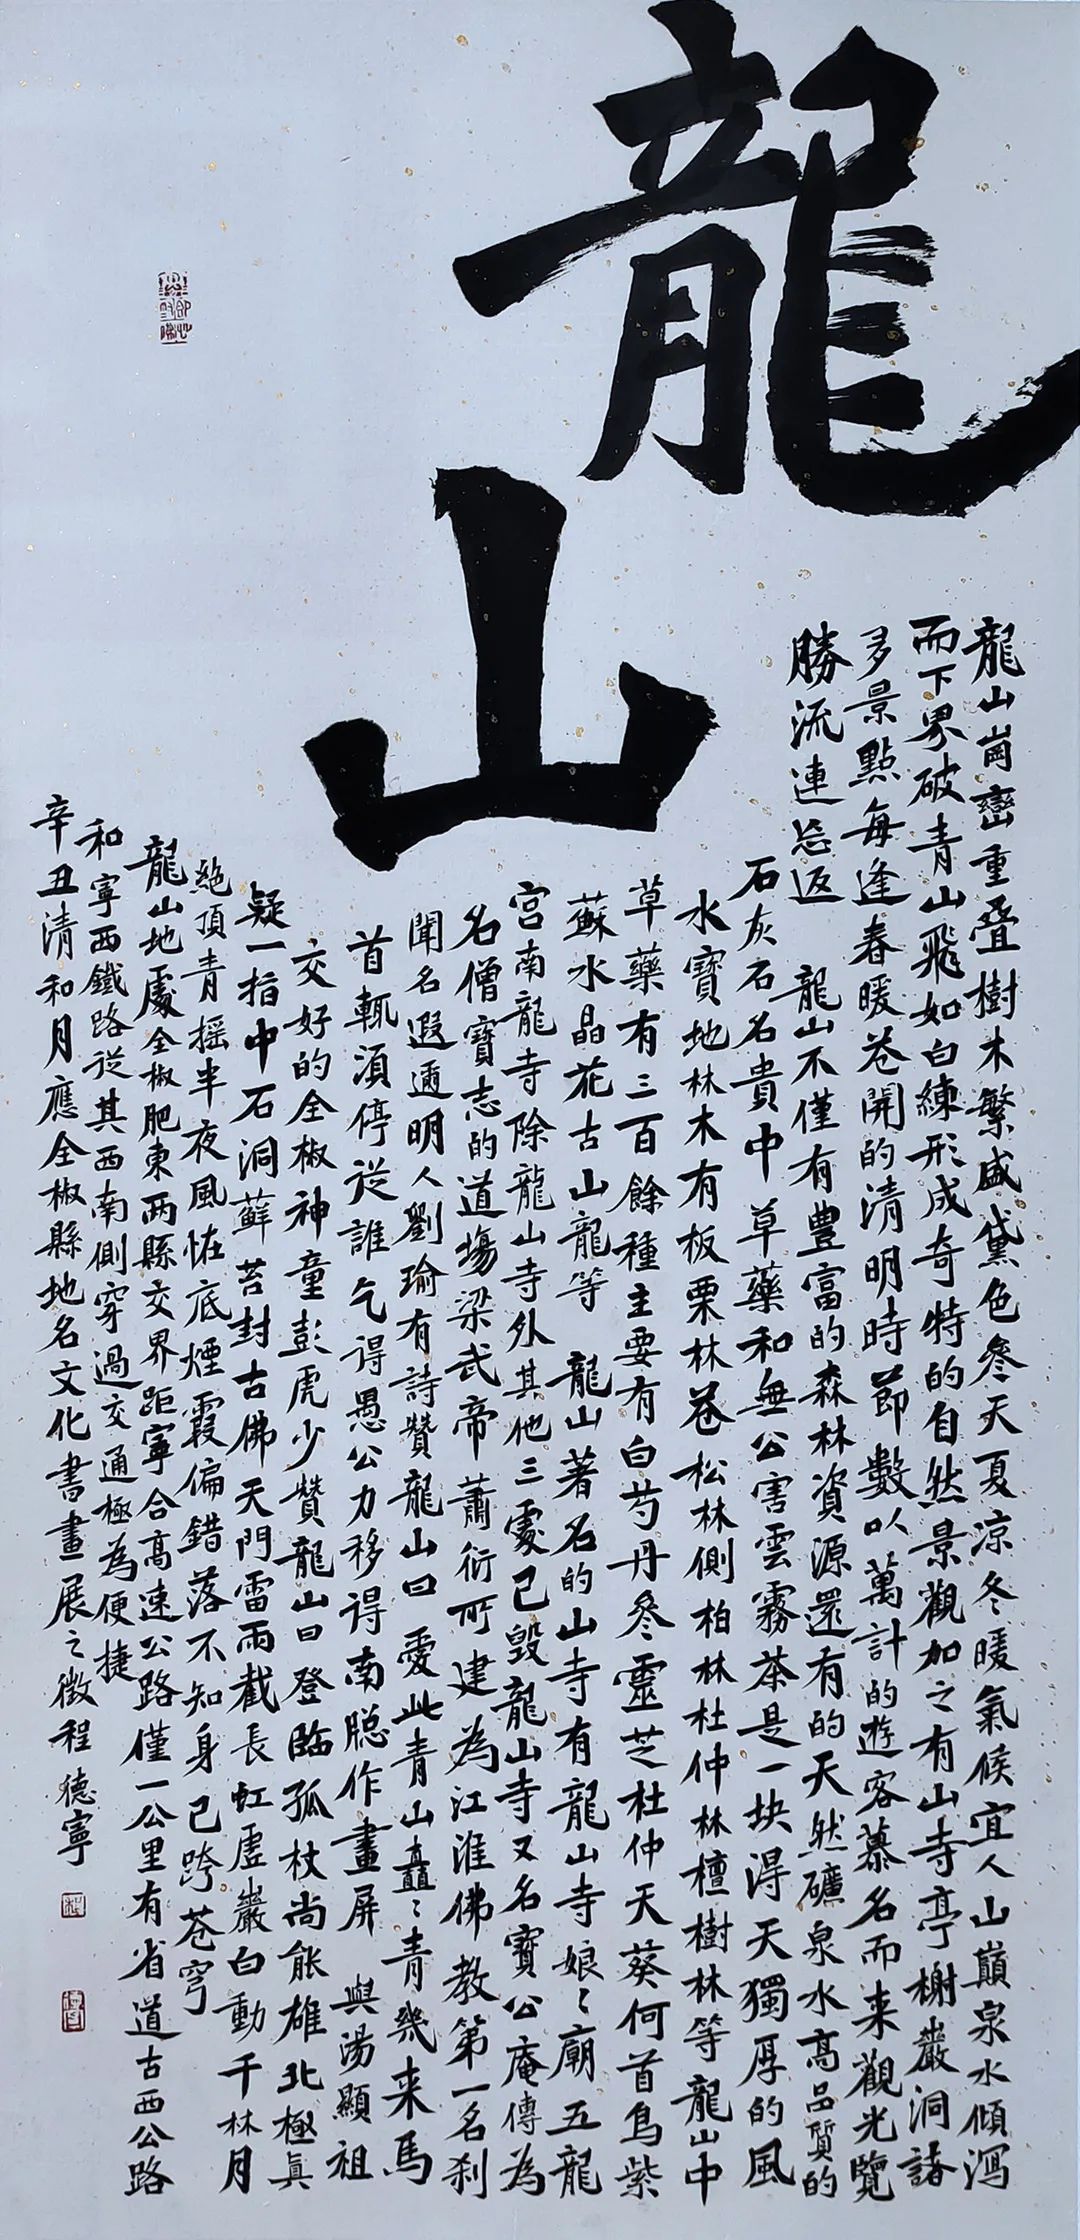 龍山
龍山崗巒重疊樹木繁盛黛色參天夏涼冬暖氣候宜人山巔泉水傾瀉
而下界破青山飛如白練形成奇特的自然景觀加之有山寺亭榭巖洞諸
多景點每逢春暖花開的清明時節數以萬計的遊客慕名而来觀光覽
勝流連忘返 龍山不僅有豊富的森林資源還有的天然礦泉水高品質的
石灰石名貴中草藥和無公害雲霧茶是一块淂天獨厚的風
水寶地林木有板栗林花松林側柏林杜仲林檀樹林等龍山中
草藥有三百餘種主要有白芍丹參靈芝杜仲天葵何首烏紫
蘇水晶花古山龍等 龍山著名的山寺有龍山寺娘〻廟五龍
宫南龍寺除龍山寺外其他三處已毁龍山寺又名寶公庵傳為
名僧寶志的道場梁武帝蕭衍所建為江淮佛教第一名刹
聞名遐邇明人劉瑜有詩贊龍山曰 愛此青山矗〻青幾来馬
首輒須停從誰乞得愚公力移得南聡作畫屏 與湯顯祖
交好的全椒神童彭虎少贊龍山曰登臨孤杖尚能雄北極真
疑一指中石洞蘚苔封古佛天門雷雨截長虹虛巖白動千林月
絶頂青摇半夜風恠底煙霞偏錯落不知身已跨苍穹
龍山地處全椒肥東两縣交界距寧合高速公路僅一公里有省道古西公路
和寧西鐵路從其西南側穿過交通極為便捷
辛丑清和月應全椒縣地名文化書畫展之徵程德寧